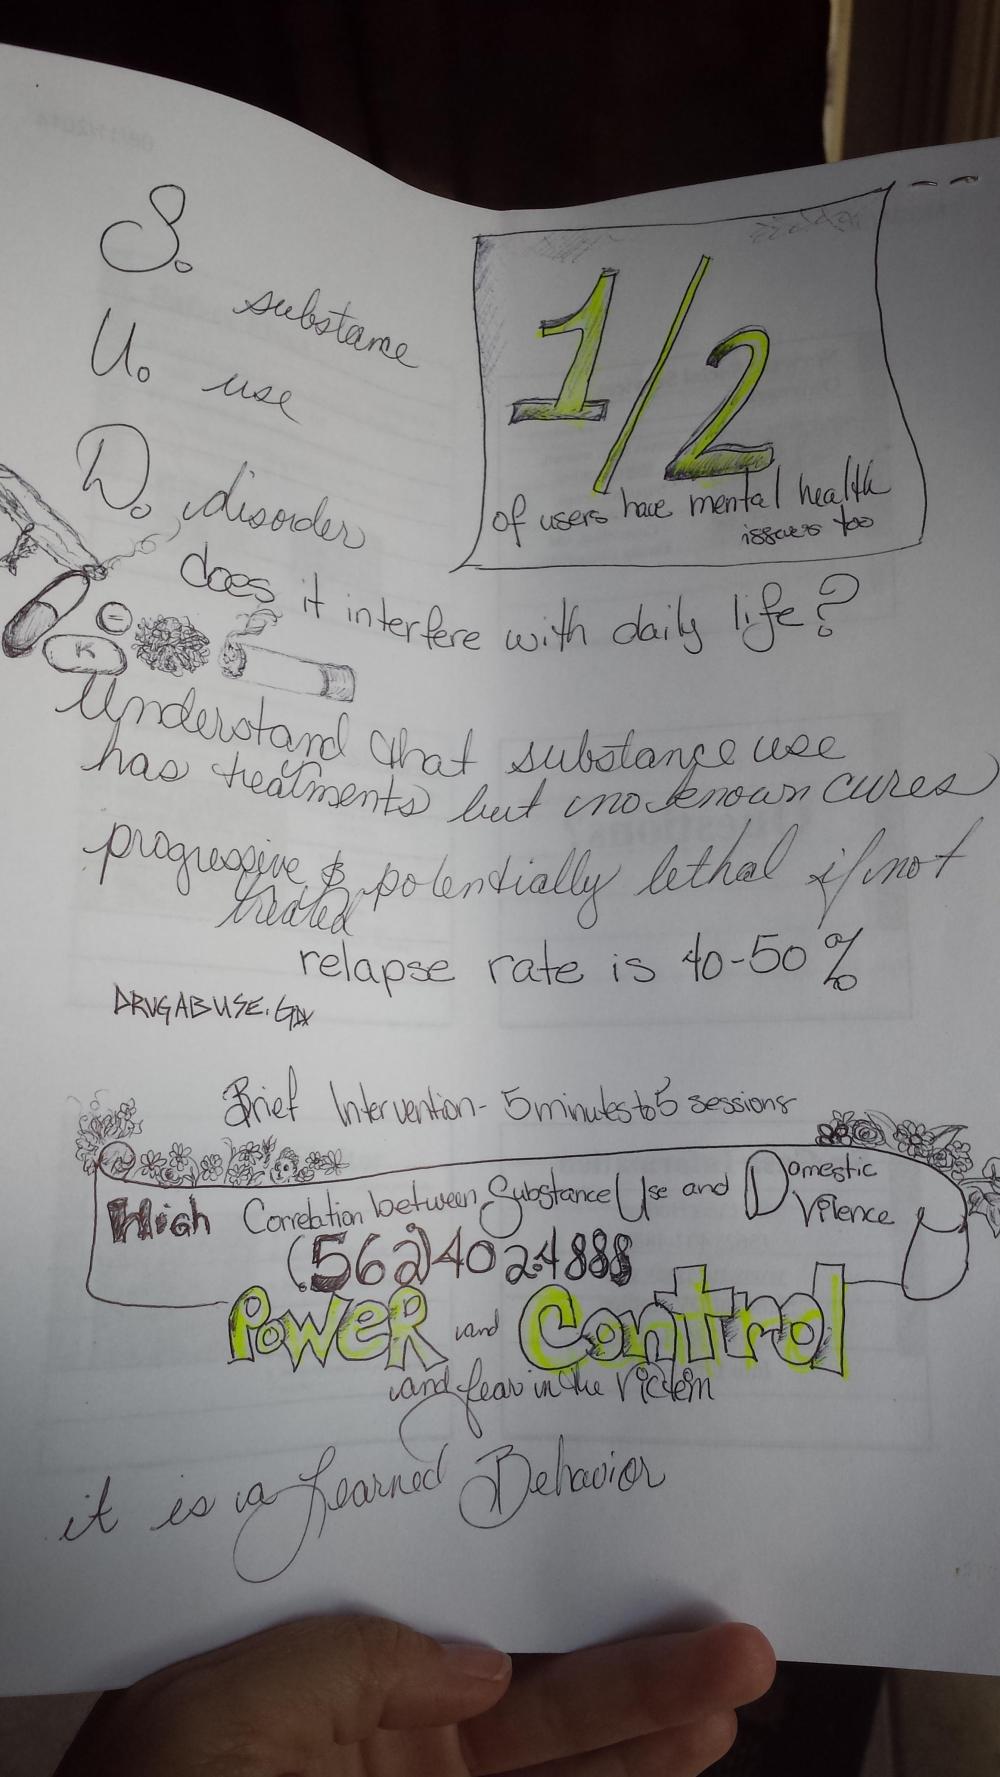 S. substance
U. use
D. disorder
1/2
of users have mental health
issues too
does it interfere with daily life?
K
Understand that substance use
has treatments but no known cures
progressive & potentially lethal if not
treated
relapse rate is 40-50%
DRUGABUSE.GOV
Brief Intervention - 5 minutes to 5 sessions
High Correlation between Substance Use and Domestic
Vilence
(562)4024888
Power and Control
and fear in the victim
it is a Learned Behavior